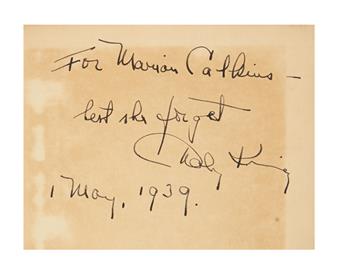 For Marion Calkins –
lest she forget
King
1 May, 1939.